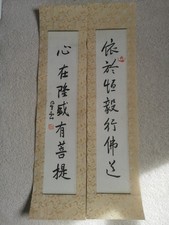 依於恒毅行佛道
心在隆盛有菩提